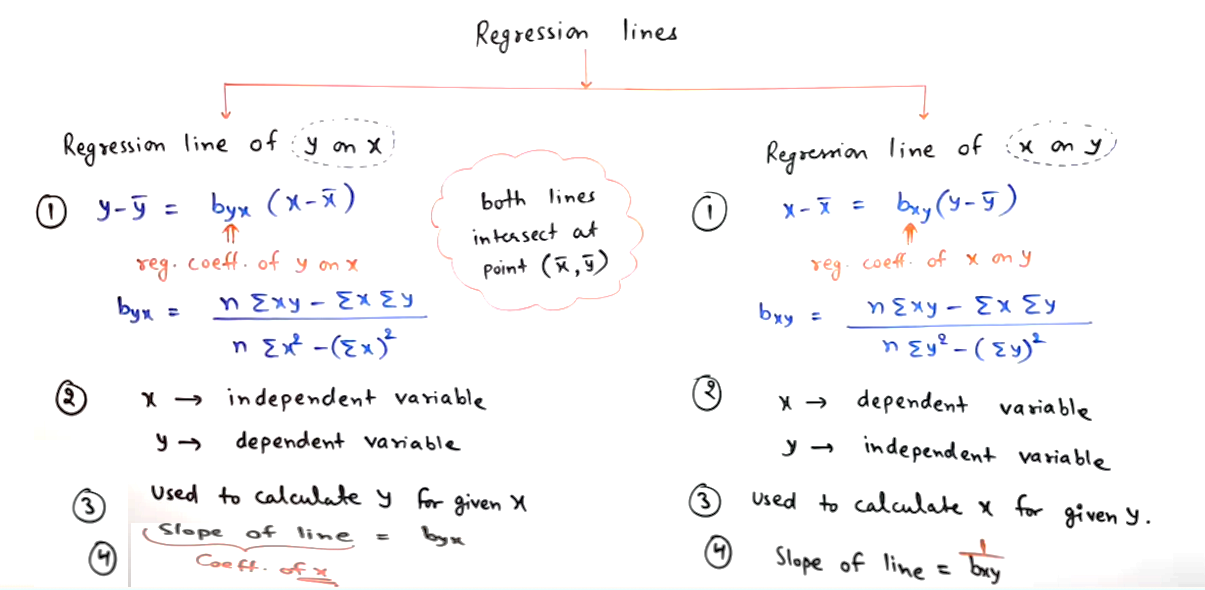 Regression lines
Regression line of y on x
① y-ȳ = byx (x-x̄)
reg. coeff. of y on x
byx = n Σxy - Σx Σy / n Σx² - (Σx)²
② x → independent variable
y → dependent variable
③ used to calculate y for given x
④ Slope of line = byx
Coeff. of x
both lines
intersect at
point (x̄, ȳ)
Regression line of x on y
① x-x̄ = bxy (y-ȳ)
reg. coeff. of x on y
bxy = n Σxy - Σx Σy / n Σy² - (Σy)²
② x → dependent variable
y → independent variable
③ used to calculate x for given y.
④ Slope of line = 1/bxy